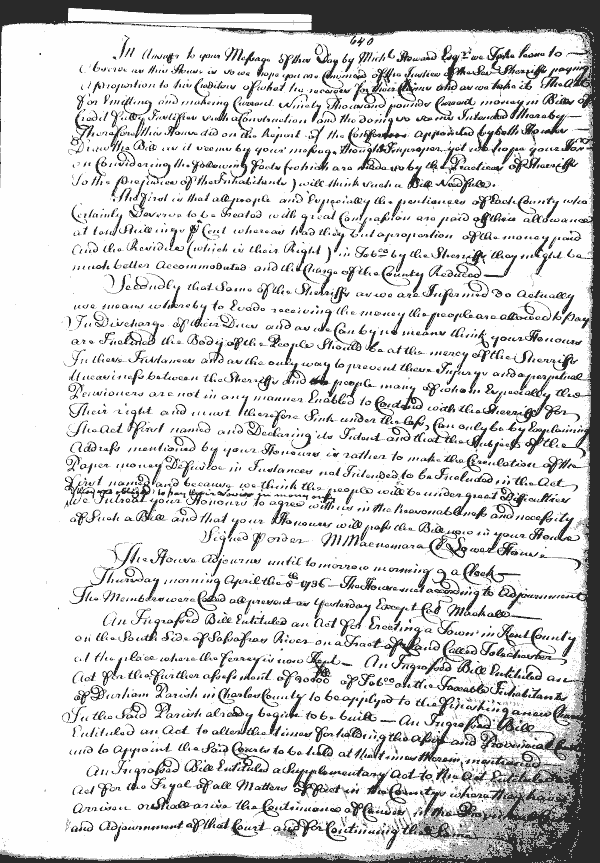 640
In Answer to your Message of this Day by Mich. Howard Esqr. we Take leave to
Observe as this House is so we hope you are Convinced of the Justice of the Sherriffs paying
a proportion to his Creditors of what he receives for their Claims and as we take it The Act
For Emitting and making Current Ninety Thousand pounds Current money in Bills of
Credit fully Justifies such a Construction and the doing so was Intended thereby
Therefore this House did on the Report of the Conferrees appointed by both Houses
Draw the Bill as it seems by your message thought Improper yet we hope your
on Considering the following Facts (which are made so by the Practices of Sherriffs
to the prejudice of the Inhabitants) will think such a Bill Needfull.
The first is that all people and Especially the pentioners of Each County who
Certainly Deserve to be treated with great Compassion are paid of their allowance
at ten Shillings P Cent whereas had they but a proportion of the money paid
and the Residue (which is their Right) in Tobco by the Sherriffs they might be
much better Accommodated and the Charge of the County Reduced
Secondly that Some of the Sherriffs as we are Informed do Actually
use means whereby to Evade receiving the money the people are allowed to pay
In Discharge of their Dues and as we Can by no means think your Honours
are Inclined the Body of the People Should be at the mercy of the Sherriffs
In these Instances and as the only way to prevent these Injurys and a perpetual
Uneasiness between the Sherriffs and the people many of whom Especially the
Pensioners are not in any manner Enabled to Contend with the Sherriffs for
Their right and must therefore Sink under the loss Can only be by Explaining
The Act first named and Declaring its Intent and that the Subject of the
Address mentioned by your Honours is rather to make the Circulation of the
Paper money Defusive in Instances not Intended to be Included in the Act
First named and because we think the people will be under great difficulties
we Intreat your Honours to agree with us in the Reasonableness and necessity
of Such a Bill and that your Honours will pass the Bill now in your House
Signed P order M Macnemara Cl Lower House
The House Adjourns until tomorrow morning 9 a Clock
Thursday morning April the 8th 1736 The House met according to Adjournment
The Members were Called all present as Yesterday Except Coll Mackall
An Ingrossed Bill Entituled an Act for Erecting a Town in Kent County
on the South Side of Sasafras River on a Tract of Land Called Tolechester
at the place where the Ferrey is now Kept An Ingrossed Bill Entituled an
Act for the further assessment of lb of Tobco on the Taxable Inhabitants
of Durham Parish in Charles County to be applyed to the finishing a new Church
In the Said Parish already begun to be built An Ingrossed Bill
Entituled an Act to alter the times for holding the Assize and Provincial Courts
and to Appoint the Said Courts to be held at the times therein mentioned
An Ingrossed Bill Entituled a Supplementary Act to the Act Entituled an
Act for the Tryal of all Matters of Fact in the Countys where they have
Arrisen or Shall arise the Continuance of Causes in the Provincial
and Adjournment of that Court and for Continuing the